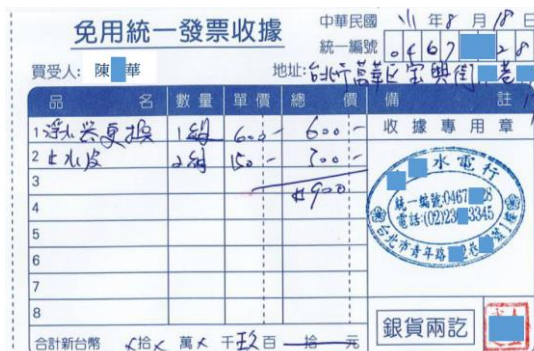 免用統一發票收據
中華民國 111 年 8 月 18 日
統一編號 0467 28
買受人: 陳 華
地址: 台北市萬華區寶興街 巷
品名 數量 單價 總價 備註
1 浮水器更換 1組 600- 600-
收據專用章
2 止水皮 2組 150- 300-
3 $900
4
5
6
7
8
水電行
統一編號:0467 28
電話:(02)23 3345
台北市青年路 巷 號1樓
銀貨兩訖
合計新台幣 ×拾× 萬× 千玖百 拾 元